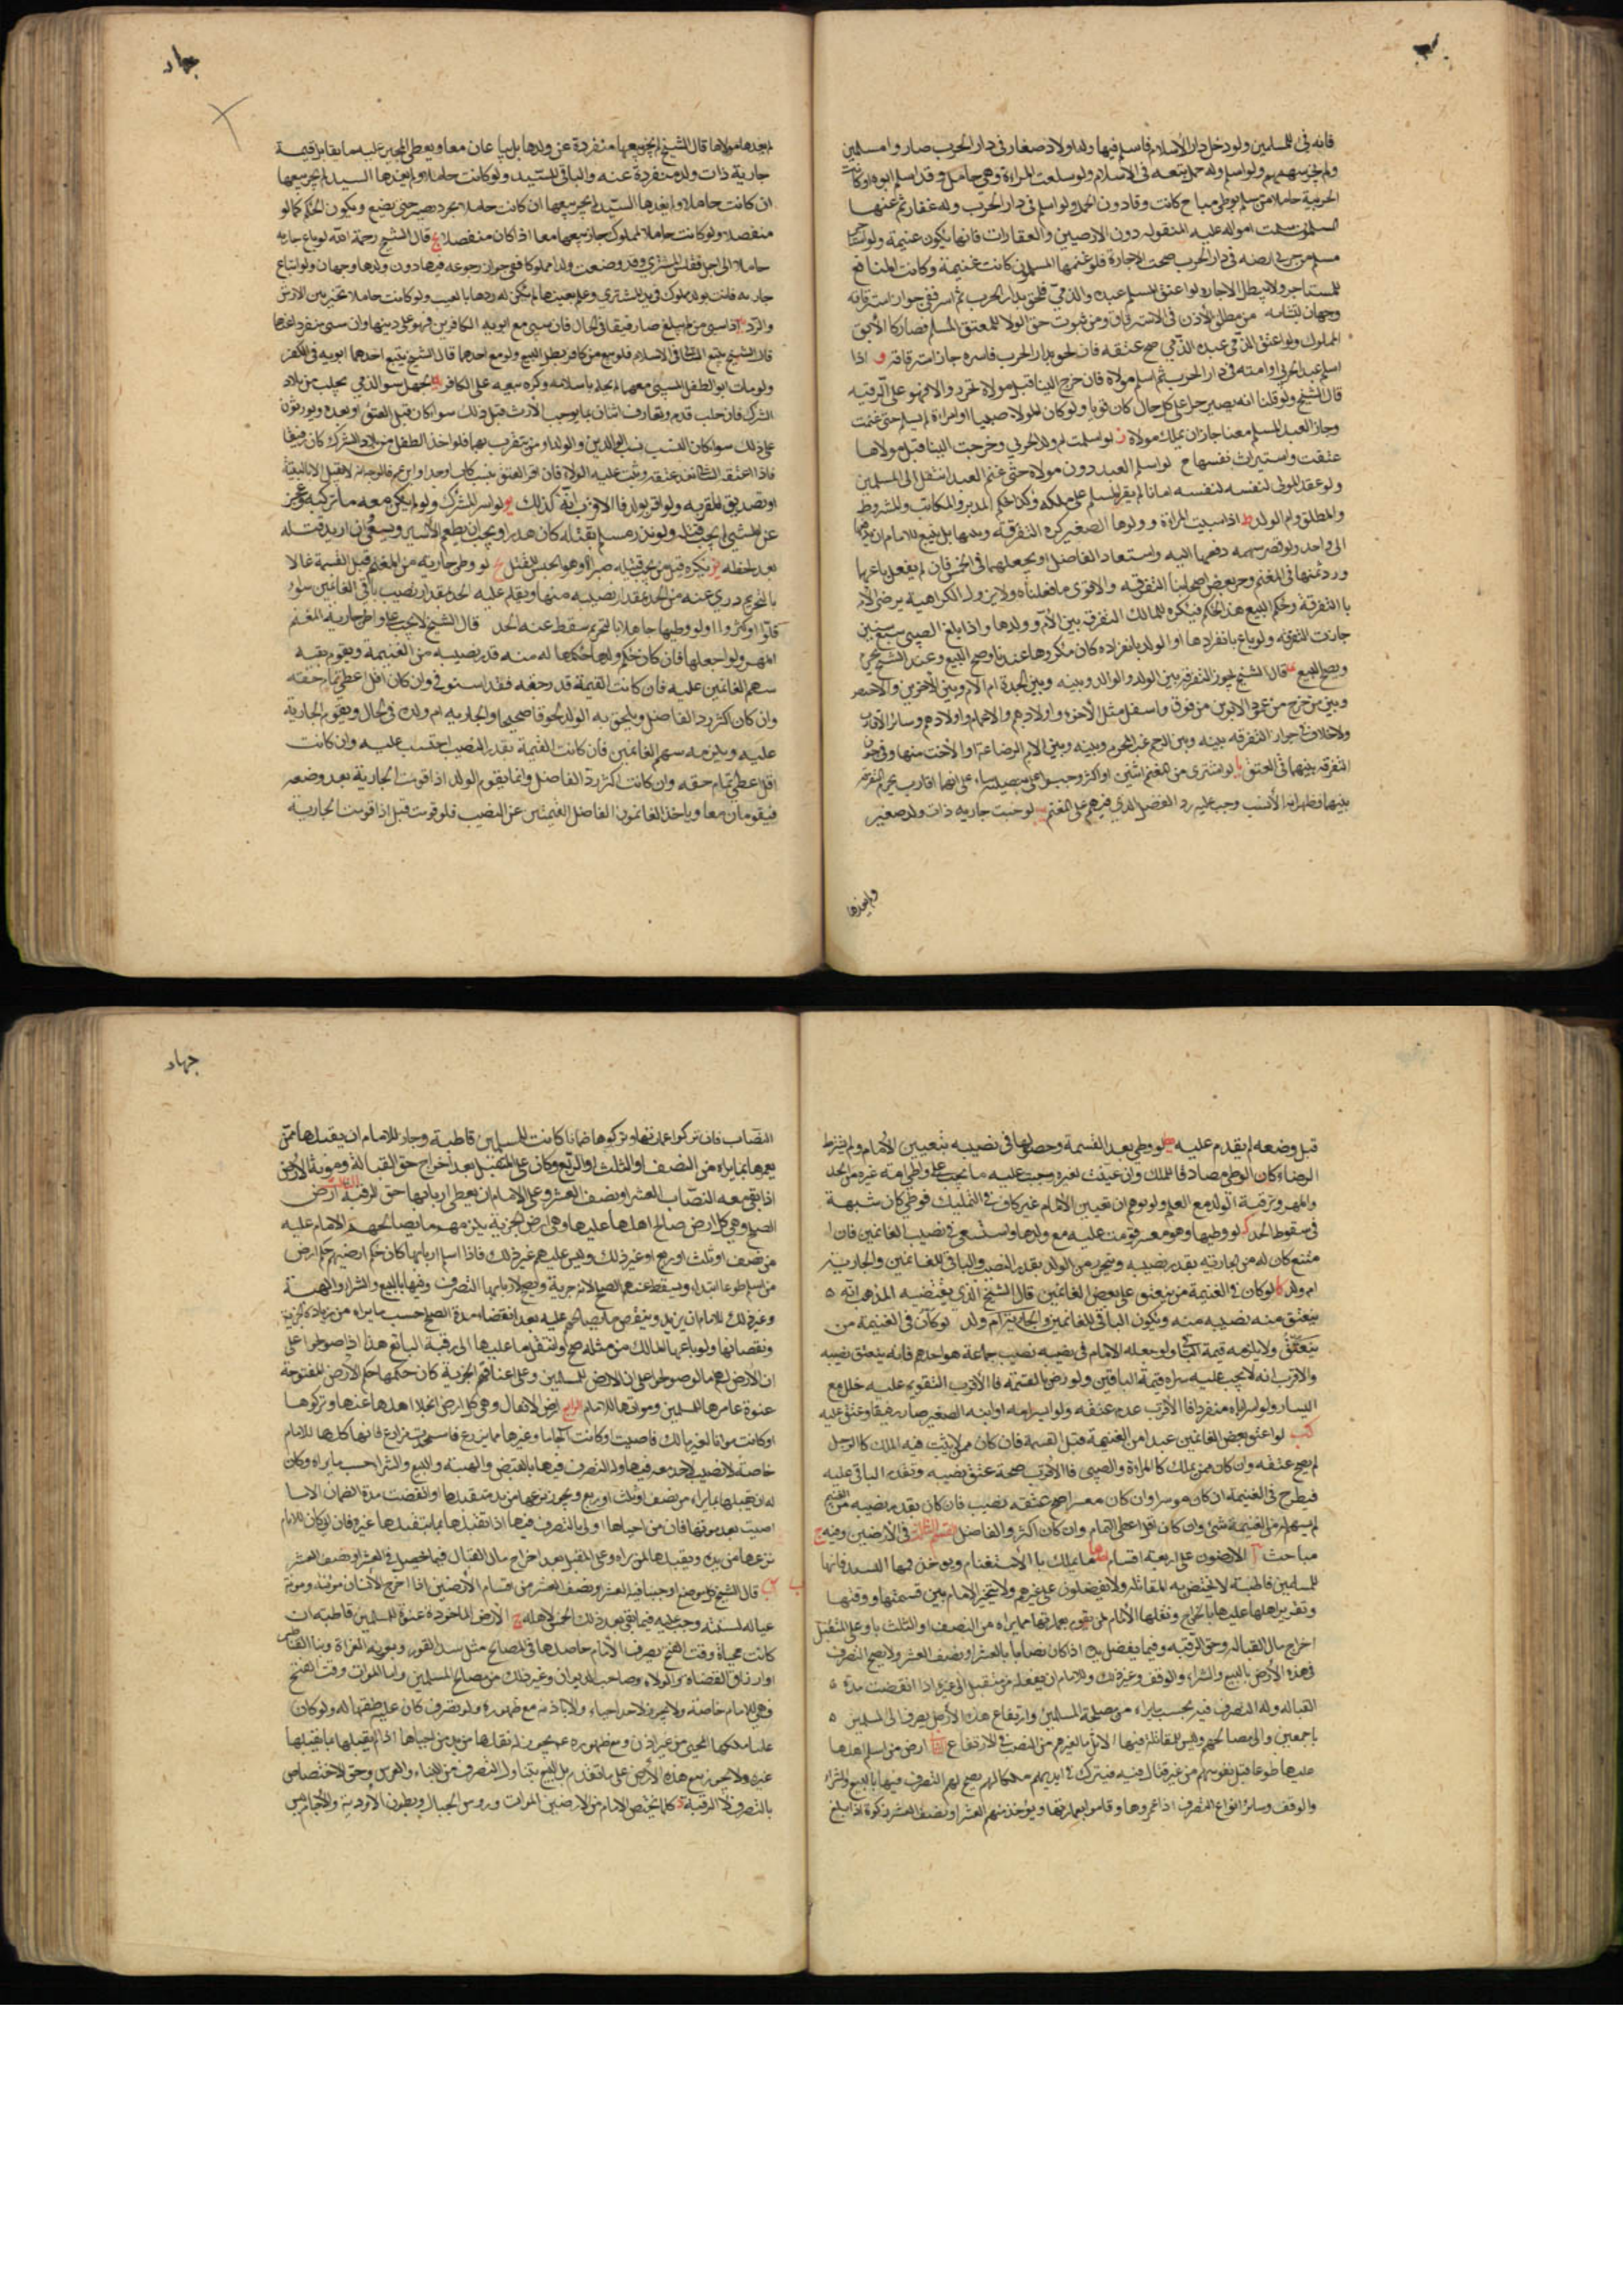 جهاد
فانه فئ للمسلمين ولو دخل دار الاسلام فاسلم فيها وله اولاد صغار فى دار الحرب صاروا مسلمين
ولم يجز سبيهم ولو اسلم وله حمل يتبعه فى الاسلام ولو سبيت المراة وهى حامل وقد اسلم ابوه
الحربية حاملا من مسلم بوطى مباح كانت رقا دون الحمل ولو اسلم فى دار الحرب وله عقار ثم غنمها
المسلمون سلمت امواله عليه المنقوله دون الارضين والعقارات فانها يكون غنيمة ولو استاجر
مسلم من حربى ارضه فى دار الحرب صحت الاجارة فلو غنمها المسلمون كانت غنيمة وكانت المنافع
للمستاجر ولا تبطل الاجاره لو اعتق المسلم عبده الذمى فلحق بدار الحرب ثم اسر ففى جواز استرقاقه
وجهان من مطلق الاذن فى الاسترقاق ومن ثبوت حق الولا للمعتق المسلم فصار كالابق
المملوك ولو اعتق الذمى عبده الذمى صح عتقه فان لحق بدار الحرب فاسره جاز استرقاقه و اذا
اسلم عبد الحربى او امته فى دار الحرب ثم اسلم مولاه فان خرج الينا قبل مولاه تحرر والا فهو على الرقيه
قال الشيخ ولو قلنا انه يصير حرا على كل حال كان قويا ولو كان المولا صبيا او امراة لم يسلم حتى غنمت
وجاز العبد المسلم معنا جاز ان يملك مولاه ز لو اسلمت ام ولد الحربى وخرجت الينا قبل مولاها
عتقت واستبرات نفسها ح لو اسلم العبد دون مولاه حتى غنم العبد انتقل الى المسلمين
ولو عقد المولى لنفسه لنفسه امانا لم يقر المسلم على ملكه وكذا حكم المدبر والمكاتب والمشروط
والمطلق وام الولد ط اذا سبيت المراة وولدها الصغير كره التفرقه بينهما بل ينبغى للامام ان يدفعهما
الى واحد ولو قصر سهمه دفعهما اليه واستعاد الفاضل او يجعلهما فى الخمس فان لم يفعل باعهما
ورد ثمنها فى المغنم وحرم بعض اصحابنا التفرقه والاقوى ما قلناه ولا يزول الكراهية برضى الام
بالتفرقة وحكم البيع هذا الحكم فيكره للمالك التفرق بين الام وولدها واذا بلغ الصبى سبع سنين
جازت التفرقه ولو باع بانفرادها او الولد بانفراده كان مكروها عندنا وصح البيع وعند الشيخ يحرم
ويصح البيع قال الشيخ يجوز التفرقه بين الولد والوالد وبينه وبين الجدة ام الام وبين الاخوين والاختين
وبين من خرج من عمود الابوين من فوق واسفل مثل الاخوة واولادهم والاعمام واولادهم وسائر الاقارب
ولا خلاف فى جواز التفرقه بينه وبين الرحم غير المحرم وبينه وبين الام الرضاعة او الاخت منها وفى جواز
التفرقه بينهما فى العتق يا لو اشترى من المغنم اثنين او اكثر وحسبوا على نصيبه بناء على انهما اقارب يحرم التفرقه
بينها فظهر انه لا نسب وجب عليه رد الفضل الذى فيهم على المغنم يب لو جنت جاريه ذات ولد صغير
ولم يفدها
لم يفدها مولاها قال الشيخ لم يجز بيعها منفردة عن ولدها بل يباعان معا ويعطى المجنى عليه ما يقابل قيمة
جارية ذات ولد منفردة عنه والباقى للسيد ولو كانت حاملا ولم يفدها السيد لم يجز بيعها
ان كانت حاملا ولم يفدها السيد لم يجز بيعها ان كانت حاملا بحر حتى تضع ويكون الحكم كما لو
منفصلا ولو كانت حاملا بمملوك جاز بيعهما معا اذا كان منفصلا يج قال الشيخ رحمة الله لو باع جاريه
حاملا الى اجل ففلس المشترى وقد وضعت ولدا مملوكا ففى جواز رجوعه فيها دون ولدها وجهان ولو ابتاع
جاريه فاتت بولد مملوك فى يد المشترى وعلم بعيبها لم يكن له ردها بالعيب ولو كانت حاملا تخير بين الارش
والرد اذا سبى من لم يبلغ صار رقيقا فى الحال فان سبى مع ابويه الكافرين فهو على دينهما وان سبى منفردا عنهما
قال الشيخ يتبع السابى فى الاسلام فلو بيع من كافر بطل البيع ولو مع احدهما قال الشيخ يتبع احدهما ابويه فى الكفر
ولو مات ابو الطفل المسبى معهما لم يحكم باسلامه وكره بيعه على الكافر الحميل هو الذى يجلب من بلاد
الشرك فان جلب قوم وتعارف اثنان بما يوجب الارث قبل ذلك سوا كان قبل العتق او بعده ويورثون
على ذلك سوا كان النسب نسب الوالدين والولد او من يتقرب بهما فلو اخذ الطفل من بلاد الشرك كان رقيقا
فاذا اعتقه السابى نفذ عتقه وثبت عليه الولاء فان اقر المعتق بنسب كاب او جد او ابن عم فالوجه انه لا يقبل الا بالبينة
او تصديق المقر به ولو اقر بولد فالاقرب انه كذلك يو لو اسر المشرك ولم يكن معه ما يركبه وعجز
عن المشى لم يجب قتله ولو بدر مسلم بقتله كان هدرا ويجب ان يطعم الاسير ويسقى وان اريد قتله
بعد لحظه يز يكره قتل من يجب قتله صبرا وهو الحبس للقتل يح لو وطى جارية من المغنم قبل القسمة عالما
بالتحريم درى عنه من الحد بقدر نصيبه منها ويقام عليه الحد بقدر نصيب باقى الغانمين سواء
قلوا او كثروا ولو وطيها جاهلا بالتحريم سقط عنه الحد قال الشيخ لا يجب على واطى جارية المغنم
المهر ولو احبلها فان حكم ولدها حكمها له منه قدر نصيبه من الغنيمة ويقوم بقيه
سهم الغانمين عليه فان كانت القيمة قدر حقه فقد استوفى وان كان اقل اعطى تمام حقه
وان كان اكثر رد الفاضل ويلحق به الولد لحوقا صحيحا والجاريه ام ولده فى الحال ويقوم الجارية
عليه ويلزمه سهم الغانمين فان كانت القيمة بقدر النصيب احتسب عليه وان كانت
اقل اعطى تمام حقه وان كانت اكثر رد الفاضل وانما يقوم الولد اذا قومت الجارية بعد وضعه
فيقومان معا وياخذ الغانمون الفاضل القيمتين عن النصيب فلو قومت قبل اذا قومت الجارية
جهاد
قبل وضعه لم يقدم عليه يط لو وطى بعد القسمة وحصولها فى نصيبه بتعيين الامام ولم يشترط
الرضاء كان الوطى مصادفا للملك وان عينت لغيره وجبت عليه ما يجب على واطى امة غيره من الحد
والمهر ورقية الولد مع العلم ولو توهم ان تعيين الامام غير كاف فى التمليك فوطى كان شبهة
فى سقوط الحد ك لو وطيها وهو معسر قومت عليه مع ولدها واستسعى فى نصيب الغانمين فان ا
متنع كان له من الجاريه بقدر نصيبه ويتحرر من الولد بقدر النصيب والباقى للغانمين والجارية
ام ولد كا لو كان فى الغنيمة من ينعتق على بعض الغانمين قال الشيخ الذى يقتضيه المذهب انه
ينعتق منه نصيبه منه ويكون الباقى للغانمين والجاريه ام ولد لو كان فى الغنيمة من
ينعتق ولا يلزمه قيمة الباقى ولو جعله الامام فى نصيبه نصيب جماعة هو احدهم فانه ينعتق نصيبه
والاقرب انه لا يجب عليه شراء قيمة الباقين ولو رضى بالقيمة فالاقرب التقويم عليه خلل مع
اليسار ولو اسر اباه منفردا فالاقرب عدم عتقه ولو اسر امه او ابنه الصغير صار رقيقا وعتق عليه
كب لو اعتق بعض الغانمين عبدا من الغنيمة قبل القسمة فان كان ممن لا يثبت فيه الملك كالرجل
لم يصح عتقه وان كان ممن يملك كالمراة والصبى فالاقرب صحة عتق نصيبه وتقدم الباقى عليه
فيطرح فى الغنيمة ان كان موسرا وان كان معسرا صح عتقه نصيب فان كان بقدر نصيبه من الغنيمة
لم يسهم من الغنيمة شئ وان كان اقل اعطى التمام وان كان اكثر والفاضل القسم الثالث فى الارضين وفيه
مباحث ا الارضون على اربعة اقسام احدها ما يملك بالاستغنام ويوخذ قهرا السيد فانها
للمسلمين قاطبة لا يختص به المقاتله ولا يفضلون على غيرهم ولا يتخير الامام بين قسمتها ووقفها
وتقرير اهلها عليها بالخراج وتقبلها الامام لمن يقوم بعمارتها بما يراه من النصف او الثلث باو على المتقبل
اخراج مال القباله وحق الرقبه وفيما يفضل بيده اذا كان نصابا بالعشر او نصف العشر ولا يصح التصرف
فى هذه الارض بالبيع والشراء والوقف وغير ذلك وللامام ان ينقله من متقبل الى غيره اذا انقضت مدة
القباله وله التصرف فيه بحسب ما يراه من مصلحة المسلمين وارتفاع هذه الارض يصرف الى المسلمين
باجمعهم والى مصالحهم وليس للمقاتلة فيها الا مثل ما لغيرهم من النصيب فى الارتفاع الثانى ارض من اسلم اهلها
عليها طوعا قبل نفوسهم من غير قتال فيه فيترك فى ايديهم ملكا لهم يصح لهم التصرف فيها بالبيع والشراء
والوقف وسائر انواع التصرف اذا عمروها وقاموا بعمارتها ويوخذ منهم العشر او نصف العشر زكوة اذا بلغ
النصاب فان تركوا عمارتها وتركوها خرابا كانت للمسلمين قاطبة وجاز للامام ان يقبلها ممن
يعمرها بما يراه من النصف او الثلث او الربع وكان على المتقبل بعد اخراج حق القبالة ومونة الارض
اذا بقى معه النصاب العشر او نصف العشر وعلى الامام ان يعطى اربابها حق الرقبة الثالث ارض
الصلح وهى كل ارض صالح اهلها عليها وهى ارض الجزية يلزمهم ما يصالحهم الامام عليه
من نصف او ثلث او ربع او غير ذلك وليس عليهم غير ذلك فاذا اسلم اربابها كان حكم ارضهم حكم ارض
من اسلم طوعا ابتداء ويسقط عنهم الصلح لانه جزية ويصح لاربابها التصرف فيها بالبيع والشراء والهبة
وغير ذلك وللامام ان يزيد وينقص ما يصالحهم عليه بعد انقضاء مدة الصلح حسب ما يراه من زيادة الجزية
ونقصانها ولو باعها المالك من مثله صح وانتقل ما عليها الى رقبة البائع هذا اذا صولحوا على
ان الارض لهم اما لو صولحوا على ان الارض للمسلمين وعلى اعناقهم الجزية كان حكمها حكم الارض المفتوحة
عنوة عامرها للمسلمين ومواتها للامام الرابع ارض الانفال وهى كل ارض انجلا اهلها عنها وتركوها
او كانت مواتا لغير مالك فاحييت او كانت اجاما وغيرها مما لا يزرع فاستحدثت مزارع فانها كلها للامام
خاصة لا نصيب لاحد معه فيها وله التصرف فيها بالقبض والهبة والبيع والشراء حسب ما يراه وكان
له ان يقبلها بما يراه من نصف او ثلث او ربع ويجوز نزعها من يد متقبلها اذا انقضت مدة الضمان الا ما
احييت بعد موتها فان من احياها اولى بالتصرف فيها اذا تقبلها بما يتقبلها غيره فان ابى كان للامام
نزعها من يده ويقبلها لمن يراه وعلى المتقبل بعد اخراج مال القبال فيما يحصل فى العشر او نصف العشر
ب قال الشيخ كل موضع اوجبنا فيه العشر ونصف العشر من اقسام الارضين اذا اخرج الانسان مونته ومونة
عياله لسنته وجب عليه فيما بقى بعد ذلك الخمس لاهله ج الارض الماخوذة عنوة للمسلمين قاطبة ان
كانت محياة وقت الفتح يصرف الامام حاصلها فى المصالح مثل سد الثغور ومعونة الغزاة وبنا القناطر
وارزاق القضاة والولاة وصاحب الديوان وغير ذلك من مصالح المسلمين واما الموات وقت الفتح
فهى للامام خاصة ولا يجوز لاحد احياءه الا باذنه مع ظهوره ولو تصرف كان عليه طسقها له ولو كان
غائبا ملكها المحيى من غير اذن ومع ظهوره يجوز له نقلها من يد من احياها اذا لم يقبلها بما يقبلها
غيره ولا يجوز بيع هذه الارض على ما تقدم بل البيع يتناول التصرف من البناء والغرس وحق الاختصاص
بالتصرف لا الرقبة د كلما يختص الامام من الارضين الموات وروس الجبال وبطون الاودية والاجام ليس